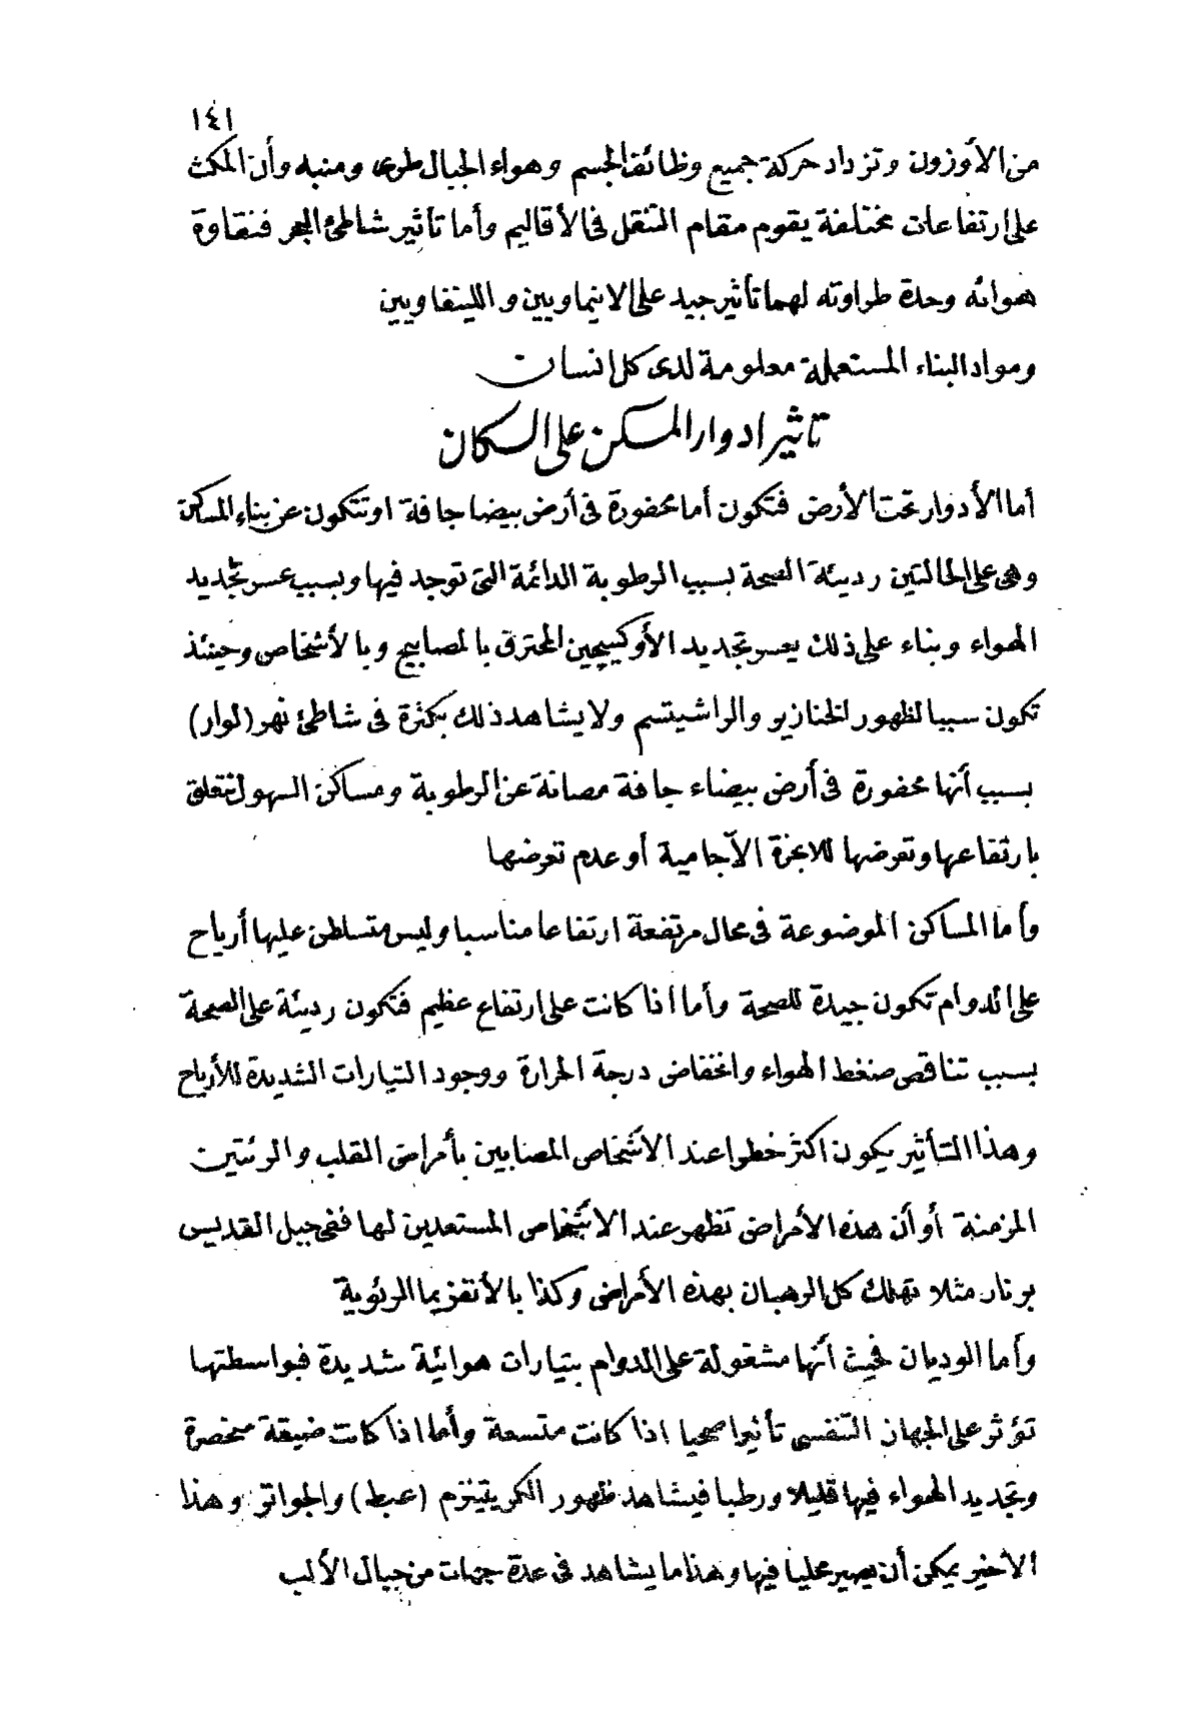 ١٤١
من الأوزون وتزداد حركة جميع وظائف الجسم وهواء الجبال طرى ومنبه وأن المكث
على ارتفاعات مختلفة يقوم مقام التنقل فى الأقاليم وأما تأثير شاطئ البحر فنقاوة
هوائه وحدة طراوته لهما تأثير جيد على الانيماويين و اللينفاويين
ومواد البناء المستعملة معلومة لدى كل انسان
تاثير ادوار المسكن على السكان
أما الأدوار تحت الأرض فتكون أما محفورة فى أرض بيضا جافة او تتكون عن بناء المسكن
وهى على الحالتين رديئة الصحة بسبب الرطوبة الدائمة التى توجد فيها وبسبب عسر تجديد
الهواء وبناء على ذلك يعسر تجديد الأوكسيجين المحترق بالمصابيح وبالأشخاص وحينئذ
تكون سببا لظهور الخنازير والراشيتسم ولا يشاهد ذلك بكثرة فى شاطئ نهر (لوار)
بسبب أنها محفورة فى أرض بيضاء جافة مصانة عن الرطوبة ومساكن السهول تتعلق
بارتفاعها وتعرضها للابخرة الآجامية أو عدم تعرضها
وأما المساكن الموضوعة فى محال مرتفعة ارتفاعا مناسبا وليس متسلطن عليها أرياح
على الدوام تكون جيدة للصحة وأما اذا كانت على ارتفاع عظيم فتكون رديئة على الصحة
بسبب تناقص ضغط الهواء وانخفاض درجة الحرارة ووجود التيارات الشديدة للأرياح
وهذا التأثير يكون اكثر خطرا عند الاشخاص المصابين بأمراض القلب والرئتين
المزمنة أو أن هذه الأمراض تظهر عند الاشخاص المستعدين لها ففى جبل القديس
برنار مثلا تهلك كل الرهبان بهذه الأمراض وكذا بالأنفزيما الرئوية
وأما الوديان فحيث أنها مشغولة على الدوام بتيارات هوائية شديدة فبواسطتها
تؤثر على الجهاز التنفسى تأثيرا صحيا اذا كانت متسعة وأما اذا كانت ضيقة منحصرة
وتجديد الهواء فيها قليلا ورطبا فيشاهد ظهور الكريتينزم (عبط) والجواتر وهذا
الأخير يمكن أن يصير محليا فيها وهذا ما يشاهد فى عدة جهات من جبال الألب